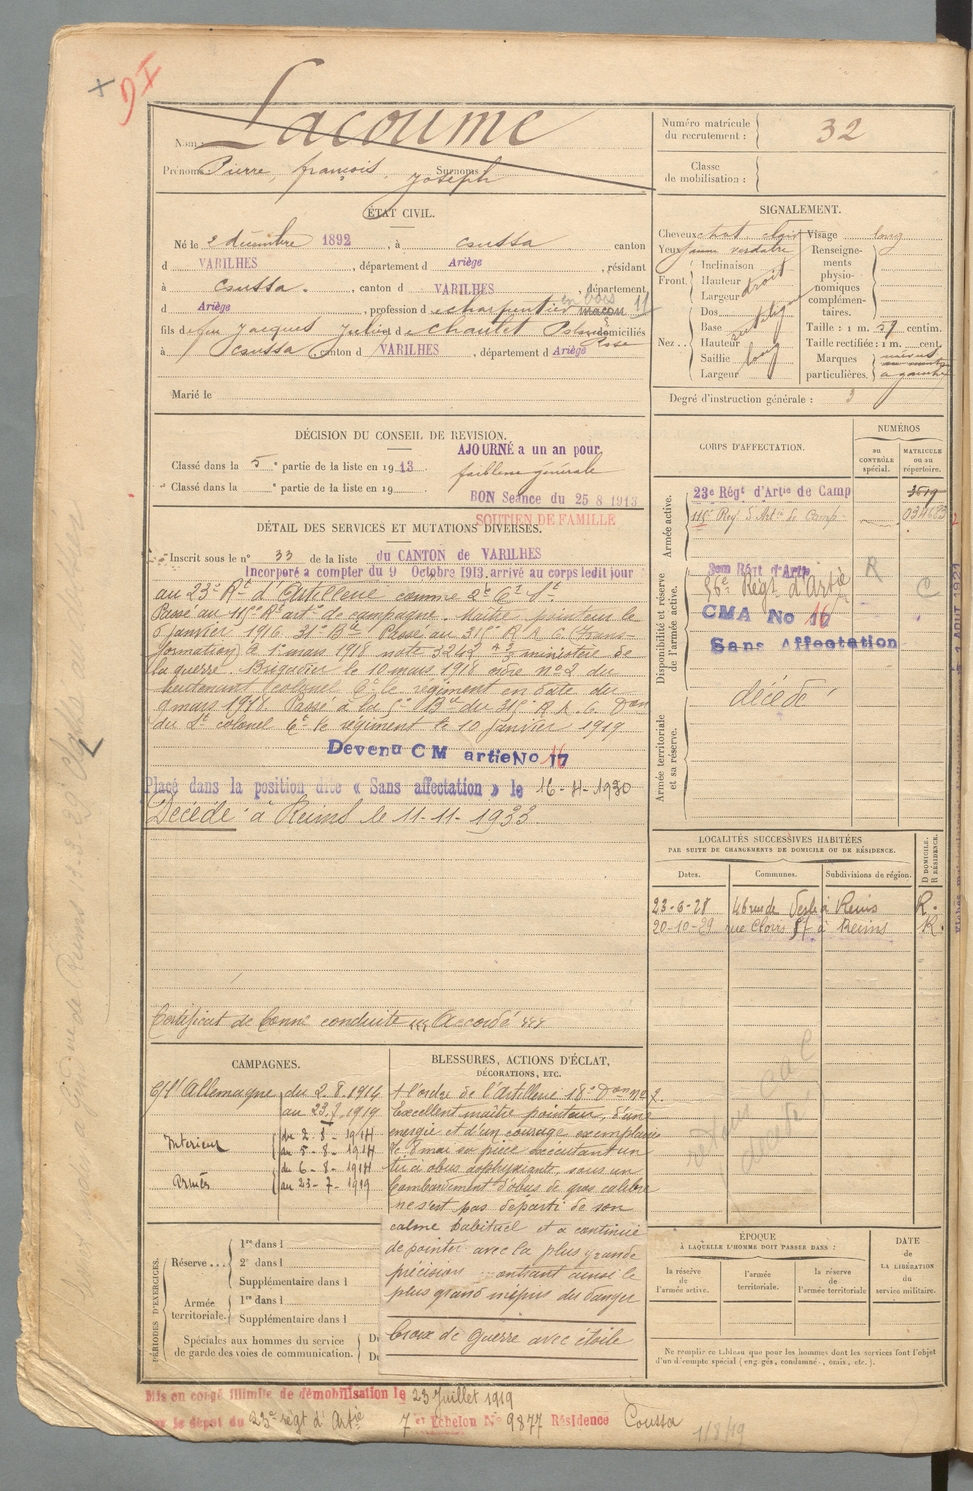 Nom : Lacoume
Prénoms Pierre, françois Surnoms
Joseph
Numéro matricule du recrutement : 32
Classe de mobilisation :
ÉTAT CIVIL.
Né le 2 décembre 1892, à Coussa canton
d VARILHES, département d Ariège, résidant
à Coussa, canton d VARILHES, département
d Ariège, profession de charpentier en bois maçon 11
fils de feu Jacques Julien et de Chaulet domiciliés
Rose
à Coussa, canton d VARILHES, département d Ariège
Marié le
SIGNALEMENT.
Cheveux chat. clair
Yeux jaune verdâtre
Front. Inclinaison
Hauteur droit
Largeur
Nez .. Dos
Base
Hauteur
Saillie long
Largeur
Visage long
Renseigne-
ments
physio-
nomiques
complémen-
taires.
Taille : 1 m. 57 centim.
Taille rectifiée : 1 m. cent.
Marques
particulières. a gauche
Degré d'instruction générale : 3
DÉCISION DU CONSEIL DE REVISION.
Classé dans la 5e partie de la liste en 1913.
AJOURNÉ a un an pour.
faiblesse générale
Classé dans la e partie de la liste en 19
BON Séance du 25 8 1913
SOUTIEN DE FAMILLE
DÉTAIL DES SERVICES ET MUTATIONS DIVERSES.
Inscrit sous le n° 33 de la liste du CANTON de VARILHES
Incorporé a compter du 9 Octobre 1913, arrivé au corps ledit jour
au 23e Rt d'Artillerie comme 2e Ct St.
Passé au 115e Rt artie de campagne. Maître pointeur le
6 janvier 1916 31e Bie Passé au 315 R A C (trans-
formation) le 1er mars 1918 note 3242 ministère de
la guerre. Brigadier le 10 mars 1918 ordre n° 2 du
lieutenant colonel Ct le régiment en date du
9 mars 1918. Passé à la 5e Bie du 315 R. A. C. Don
du Lt colonel Ct le régiment le 10 janvier 1919
Devenu C M artie No 16 17
Placé dans la position dite « Sans affectation » le 16-4-1930
Décédé à Reims le 11-11-1933.
Certificat de bonne conduite Accordé
CORPS D'AFFECTATION.
NUMÉROS
au CONTRÔLE spécial.
MATRICULE ou au répertoire.
Armée active.
23e Régt d'Artie de Camp 3619
115e Reg. d'Art. de Camp.
Disponibilité et réserve de l'armée active.
Régt d'Artie R
56e Régt d'Artie C
CMA No 16
Sans Affectation
Armée territoriale et sa réserve.
décédé
LOCALITÉS SUCCESSIVES HABITÉES
PAR SUITE DE CHANGEMENTS DE DOMICILE OU DE RÉSIDENCE.
Dates. Communes. Subdivisions de région. D DOMICILE. R RÉSIDENCE.
23-6-28 46 rue de Vesle à Reims R.
20-10-29 rue Clovis 57 à Reims R.
CAMPAGNES.
C/ l'Allemagne du 2.8.1914
au 23.7.1919
Intérieur du 2-8-1914
au 5-8-1914
Armées du 6-8-1914
au 23-7-1919
BLESSURES, ACTIONS D'ÉCLAT,
DÉCORATIONS, ETC.
à l'ordre de l'Artillerie 18e Don n° 2.
Excellent maître pointeur, d'une
énergie et d'un courage exemplaires
le 8 mai sa pièce exécutant un
tir à obus asphyxiants, sous un
bombardement d'obus de gros calibre
ne s'est pas départi de son
calme habituel et a continué
de pointer avec la plus grande
précision montrant ainsi le
plus grand mépris du danger
Croix de guerre avec étoile
PÉRIODES D'EXERCICES.
Réserve ... 1re dans l
2e dans l
Supplémentaire dans l
Armée territoriale. 1re dans l
Supplémentaire dans l
Spéciales aux hommes du service
de garde des voies de communication.
ÉPOQUE
À LAQUELLE L'HOMME DOIT PASSER DANS :
la réserve de l'armée active.
l'armée territoriale.
la réserve de l'armée territoriale
DATE de LA LIBÉRATION du service militaire.
Ne remplir ce tableau que pour les hommes dont les services font l'objet
d'un décompte spécial (engagés, condamnés, omis, etc.).
Mis en congé illimité de démobilisation le 23 Juillet 1919
par le dépôt du 23e régt d'Artie 7e Echelon No 9877 Résidence Coussa
1/8/19